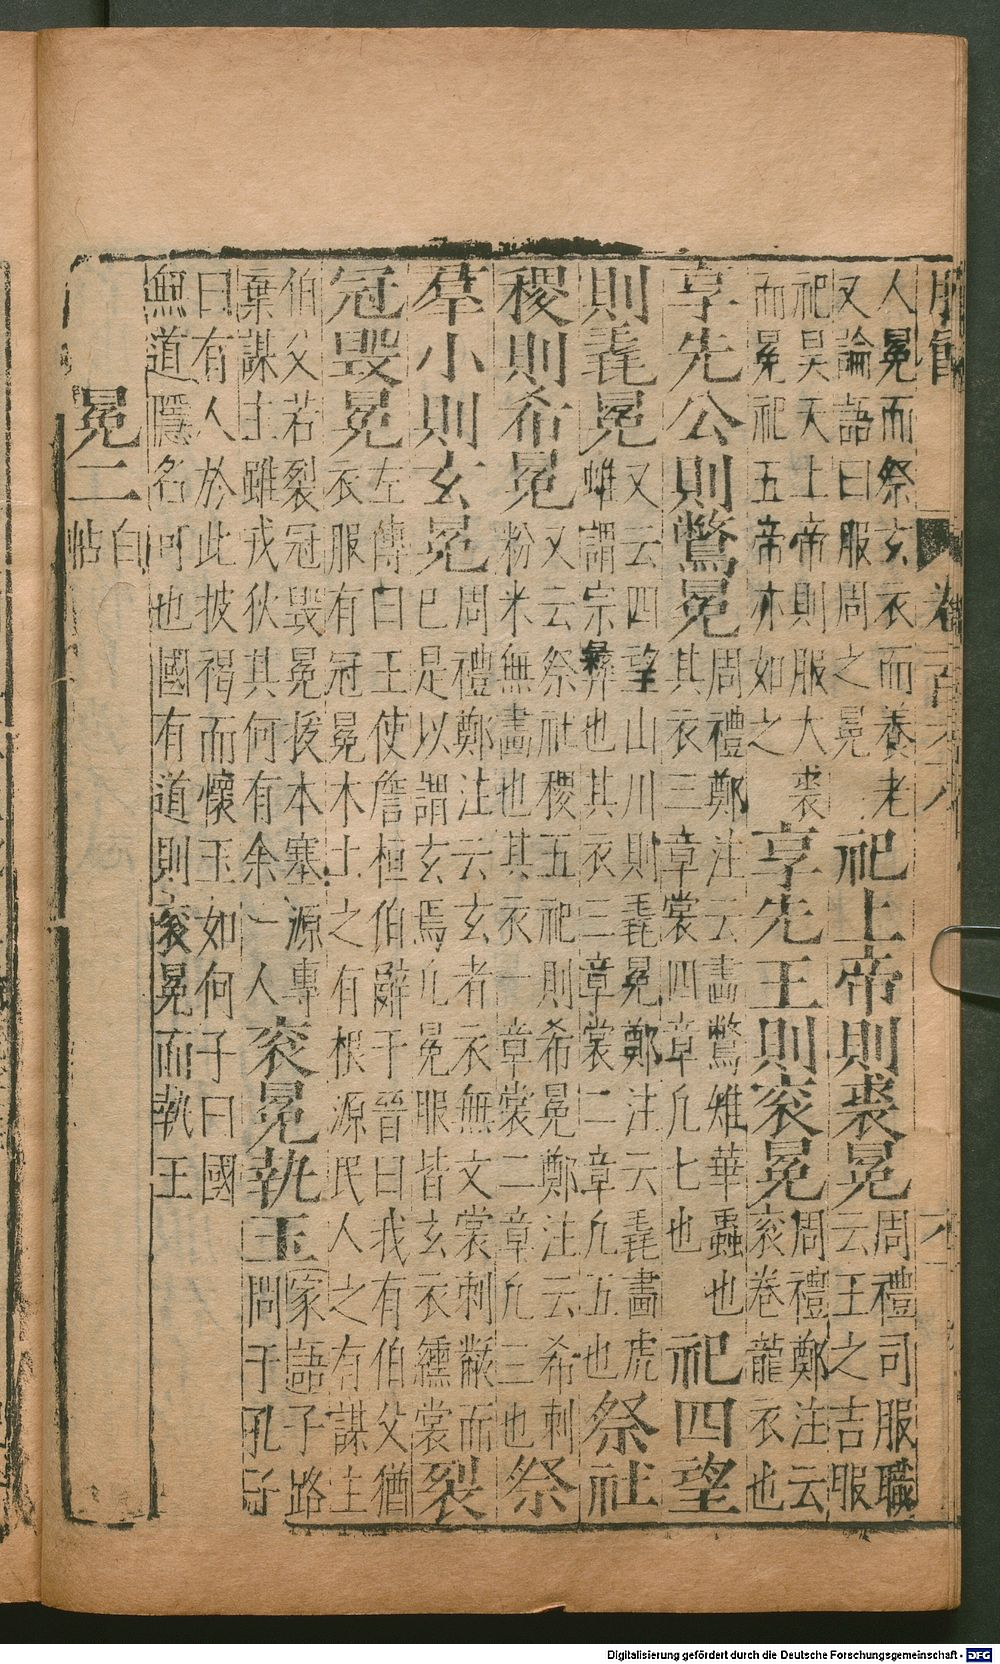 人冕而祭玄衣而養老
又論語曰服周之冕
祀上帝則裘冕
周禮司服職
云王之吉服
祀昊天上帝則服大裘
而冕祀五帝亦如之
享先王則衮冕
周禮鄭注云
衮卷龍衣也
享先公則鷩冕
周禮鄭注云畫鷩雉華蟲也
其衣三章裳四章凡七也
祀四望
則毳冕
又云四望山川則毳冕鄭注云毳畫虎
蜼謂宗彝也其衣三章裳二章凡五也
祭社
稷則希冕
又云祭社稷五祀則希冕鄭注云希刺
粉米無畫也其衣一章裳二章凡三也
祭
羣小則玄冕
周禮鄭注云玄者衣無文裳刺黻而
已是以謂玄焉凡冕服皆玄衣纁裳
裂
冠毀冕
左傳曰王使詹桓伯辭于晉曰我有伯父猶
衣服有冠冕木土之有根源民人之有謀主
伯父若裂冠毀冕拔本塞源專
棄謀主雖戎狄其何有余一人
衮冕執玉
家語子路
問于孔子
曰有人於此披褐而懷玉如何子曰國
無道隱名可也國有道則衮冕而執王
冕二
白
帖
Digitalisierung gefördert durch die Deutsche Forschungsgemeinschaft - DFG